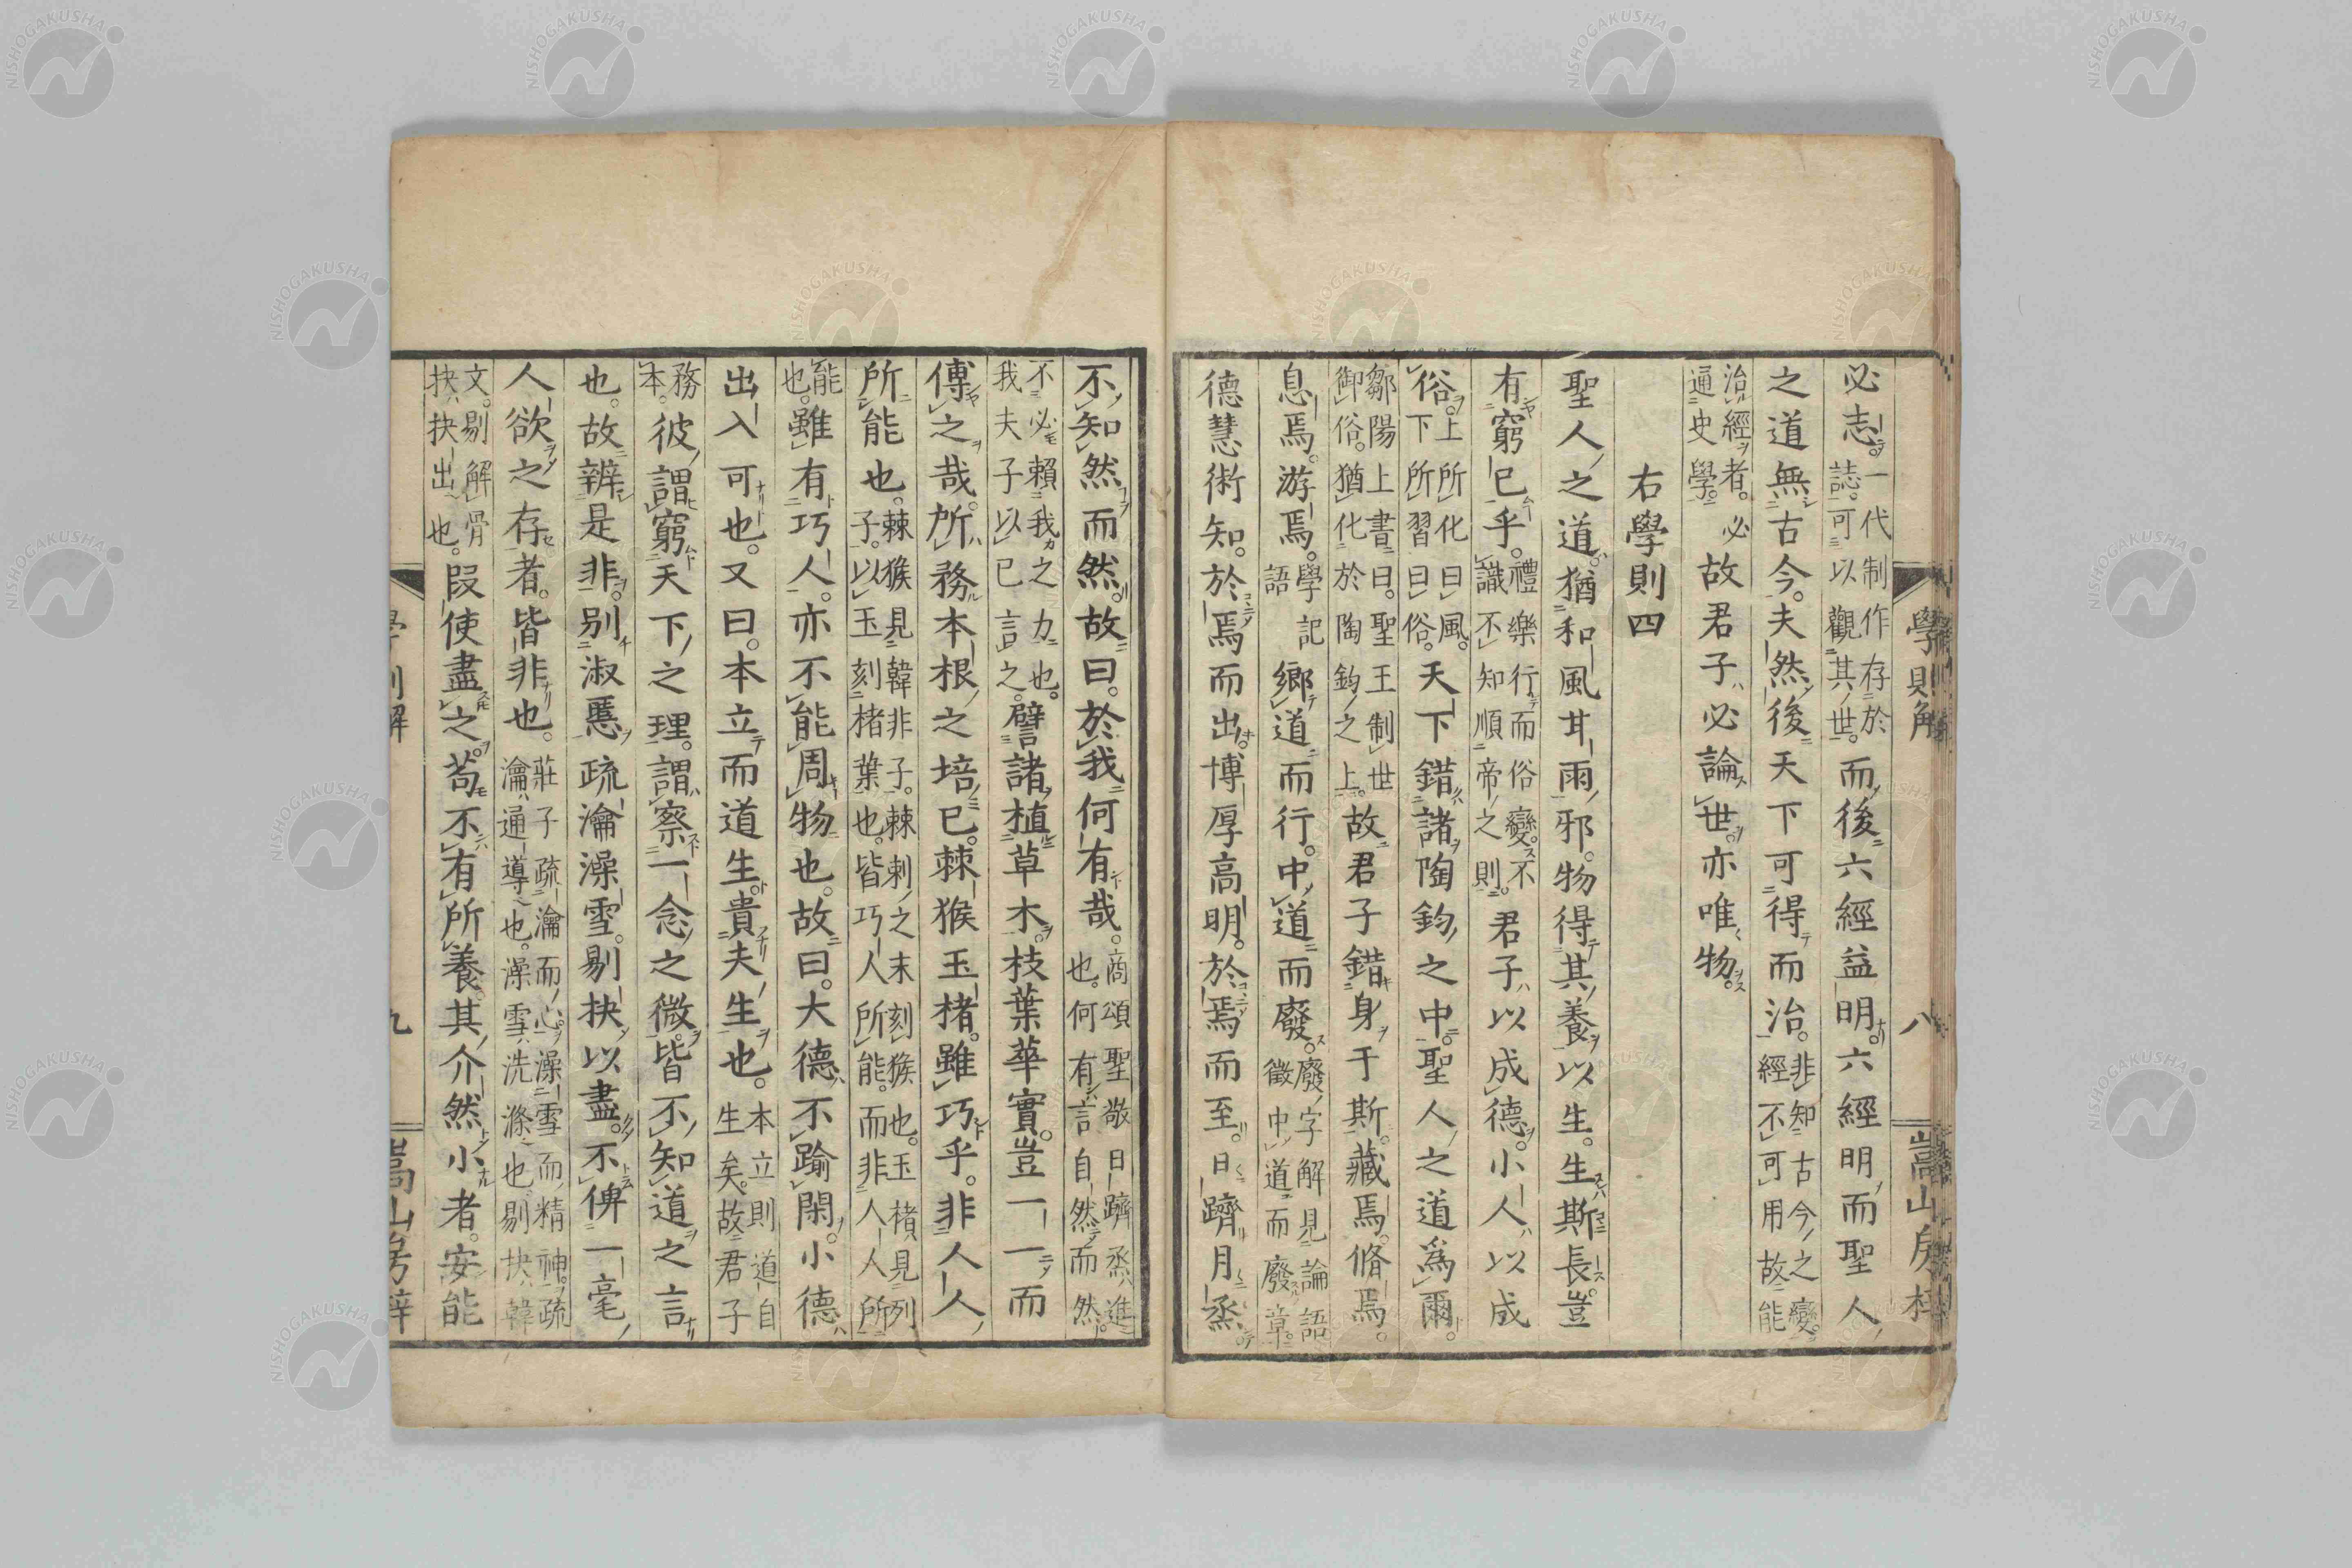 必志。一代制作存於誌。可以觀其世。而後六經益明。六經明。而聖人
之道無古今。夫然後天下可得而治。非知古今之變。經不可用故能
治經者。必通史學。故君子必論世。亦唯物。
右學則四
聖人之道。猶和風甘雨邪。物得其養以生。生斯長。豈
有窮已乎。禮樂行而俗變。不識不知順帝之則。君子以成德。小人以成
俗。上所化曰風。下所習曰俗。天下錯諸陶鈞之中。聖人之道爲爾。
鄒陽上書曰。聖王制世御俗。猶化於陶鈞之上。故君子錯身于斯。藏焉。脩焉。
息焉。游焉。學記語 鄉道而行。中道而廢。廢字解見論語徵中道而廢章。
德慧術知。於焉而出。博厚高明。於焉而至。日躋月烝。
不知然而然。故曰。於我何有哉。商頌聖敬日躋烝進也。何有言自然而然。
不必賴我之力也。我夫子以已言之。譬諸植草木。枝葉華實。豈一一而
傅之哉。所務本根之培已。棘猴玉楮。雖巧乎。非人人
所能也。棘猴見韓非子。棘刺之末刻猴也。玉楮見列子。以玉刻楮葉也。皆巧人所能。而非人人所
能也。雖有巧人。亦不能周物也。故曰。大德不踰閑。小德
出入可也。又曰。本立而道生。貴夫生也。本立則道自生矣。故君子
務本。彼謂窮天下之理。謂察一念之微。皆不知道之言
也。故辨是非。別淑慝。疏瀹澡雪。剔抉以盡。不俾一毫
人欲之存者。皆非也。莊子疏瀹而心。澡雪而精神。疏瀹通導也。澡雪洗滌也。剔抉韓
文。剔解骨抉抉出也。叚使盡之。苟不有所養。其介然小者。安能
學則解 八 嵩山房梓
學則解 九 嵩山房梓